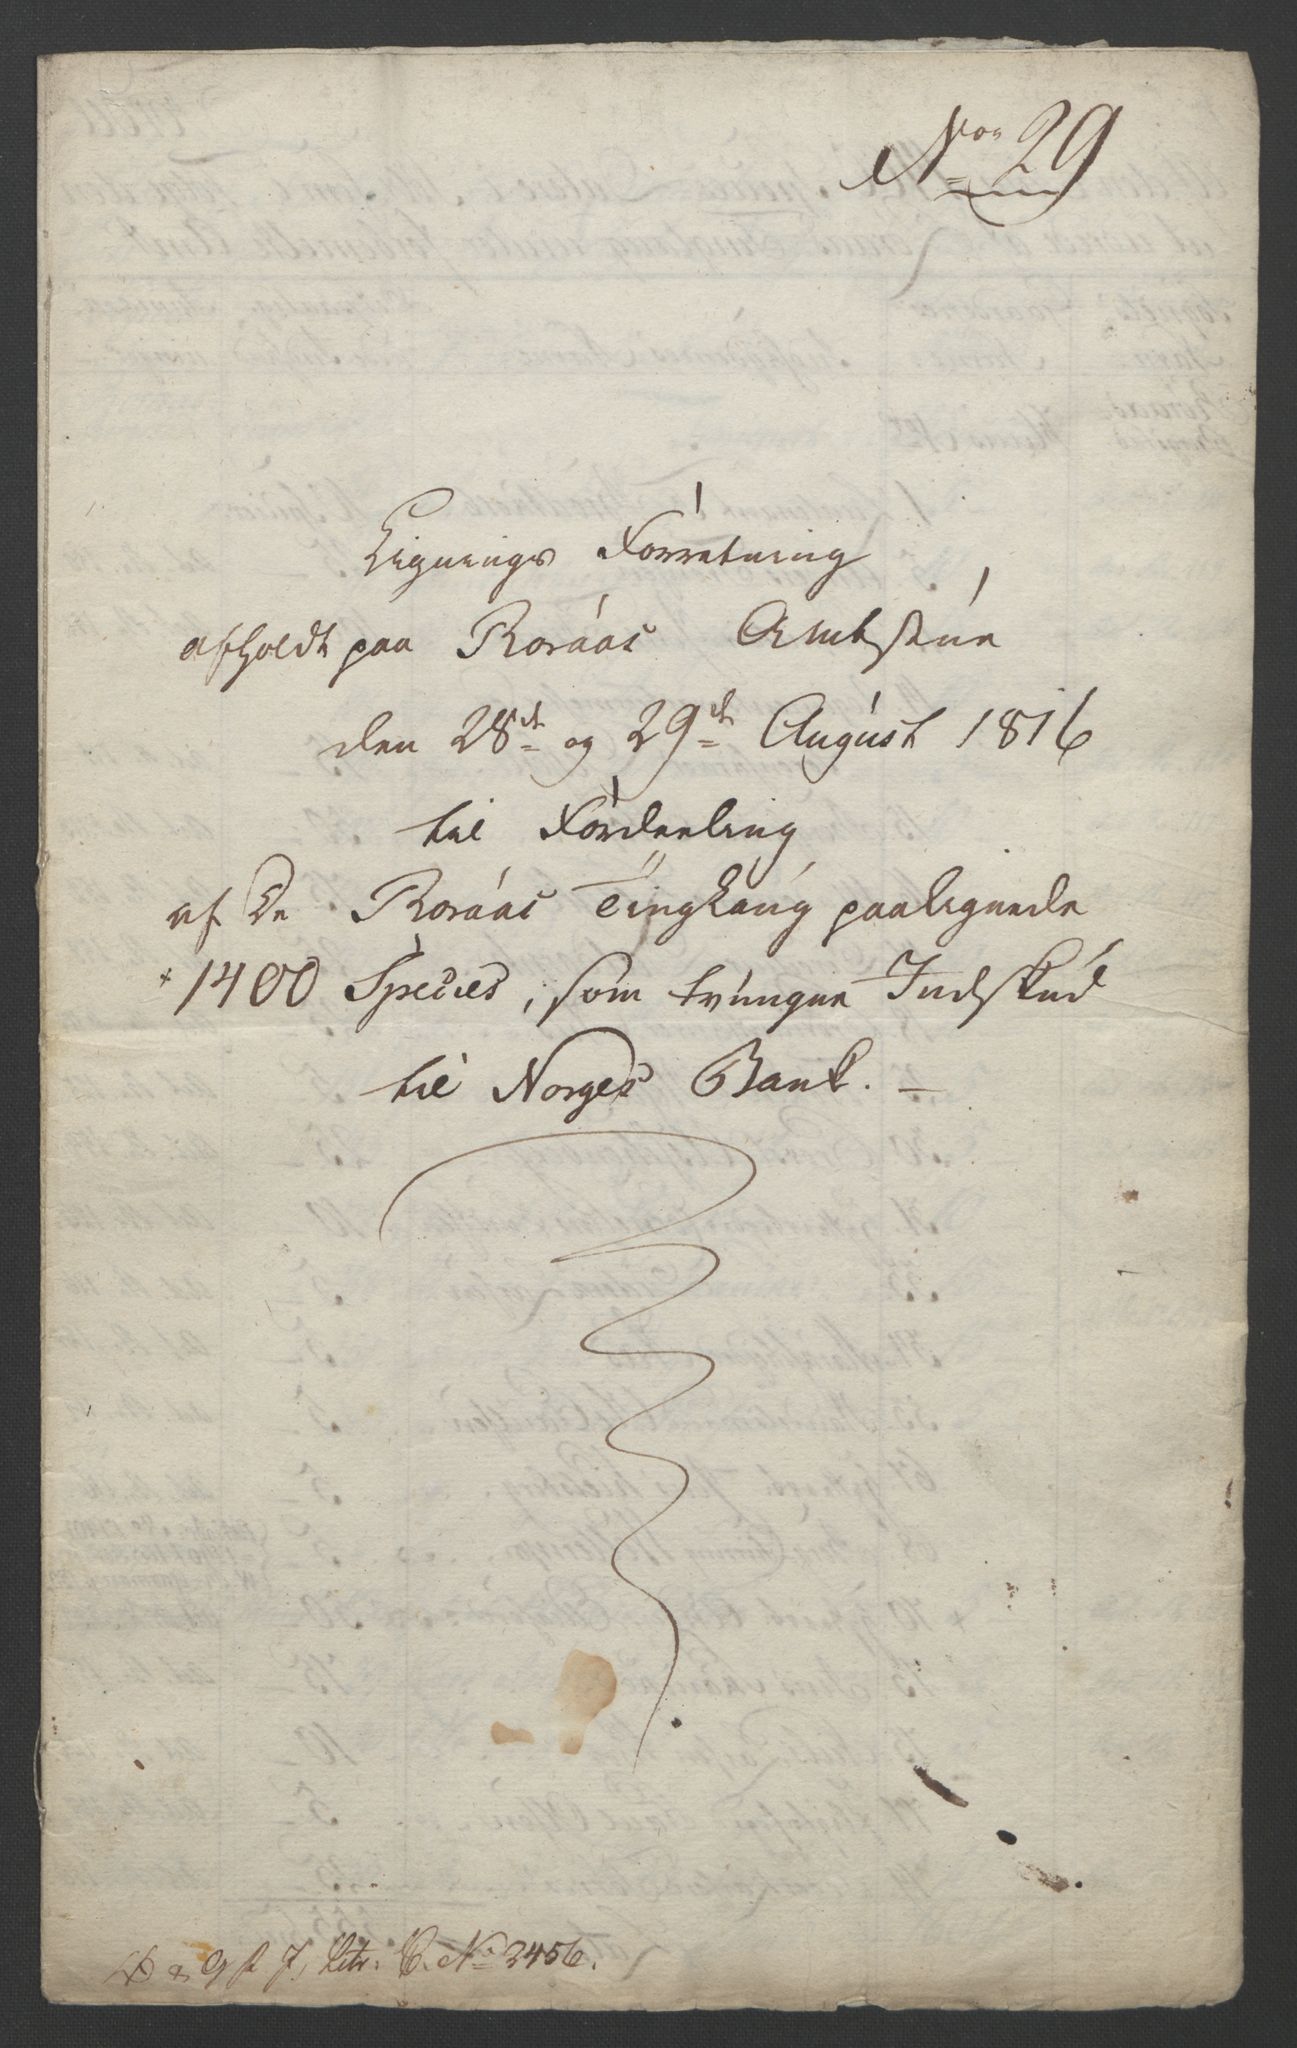 No 29
Lignings Forretning
afholdt paa Roraas Amtstue
den 28de og 29de August 1816
til Fordeeling
af de Roraas Tinglaug paalignede
1400 Species, som tvungne Indskud
til Norges Bank. —
Litr. C. No 2456.